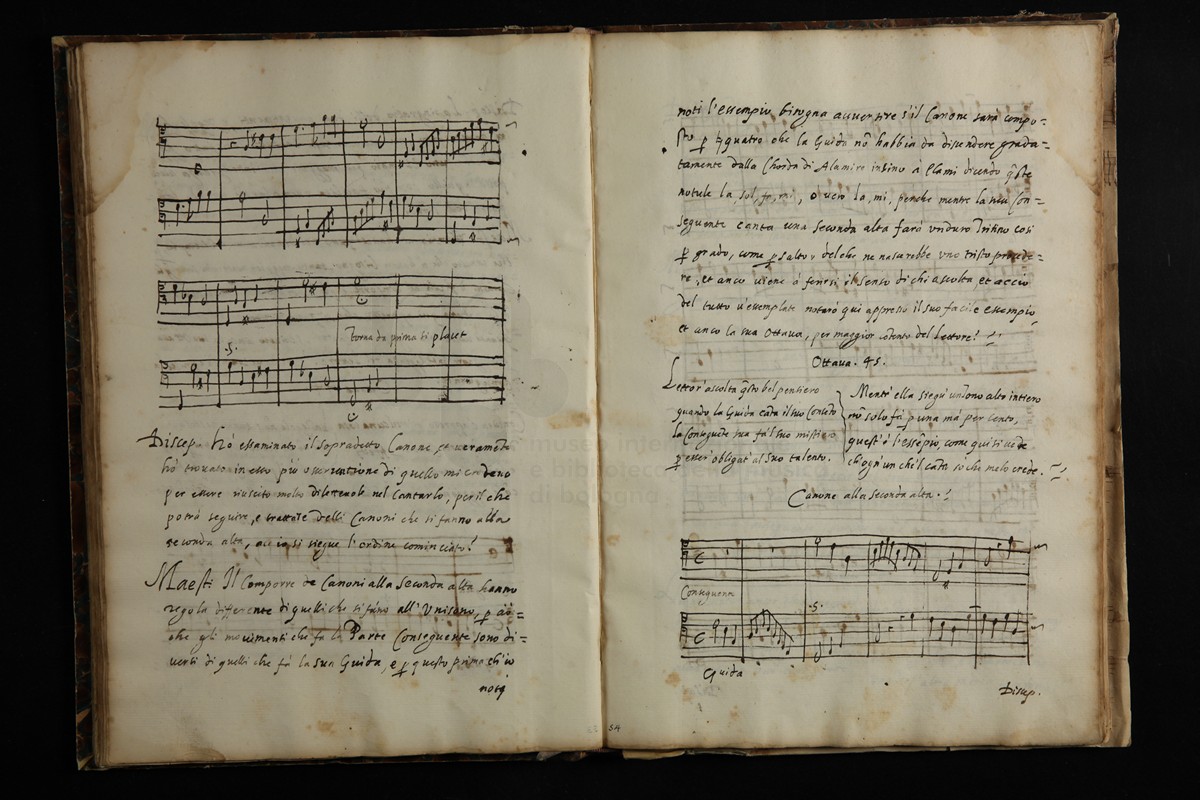 Torna da prima si placet
.5.
Discep. hò essaminato il sopradetto Canone et veramēte
hò trouato in esso più osseruatione di quello mi credeuo
per essere riuscito molto diletteuole nel Cantarlo, per il che
potrà seguire, e trattare delli Canoni che si fanno alla
seconda alta, acciò si siegue l'ordine cominciato!
Maest: Il Comporre de Canoni alla seconda alta hanno
regola differente di quelli che si fano all'Vnisono, ꝑ ciò=
che gli mouimenti che fa la Parte Conseguente sono di=
uersi di quelli che fà la sua Guida, e ꝑ questo prima ch'io
noti
noti l'essempio bisogna auuertire s'il Canone sarà compo=
sto ꝑ ♮quatro che la Guida nō habbia da disendere grada=
tamente dalla Chorda di Alamire insino à Elami dicendo q̄ste
notule la, sol, fa, mi, ò uero la, mi, perche mentre la sua Con=
seguente canta una seconda alta farà un duro Tritino così
ꝑ grado, come ꝑ salto, del che ne nasarebbe uno tristo procede=
re, et anco uiene à ferirsi il senso di chi ascolta, et acciò
del tutto u'essemplate notarò qui appresso il suo facile essempio
et anco la sua Ottaua, per maggior cōtento del Lettore!
Ottaua. 45.
Lettor' ascolta q̄sto bel pensiero
quando la Guida cāta il suo Concēto
la Conseguēte sua fà l'suo mistiero
ꝑ esser' obligat' al suo talento.
Mentr' ella siegu' un Tono alto intiero
nō solo fà ꝑ una mà per cento,
quest' è l'essēpio, come qui si uede
ch'ogn'un che'l cāta so che me lo crede.
Canone alla seconda alta.
Conseguente
.5.
Guida
Discep.
54
museo inter
e biblioteca
di bologna